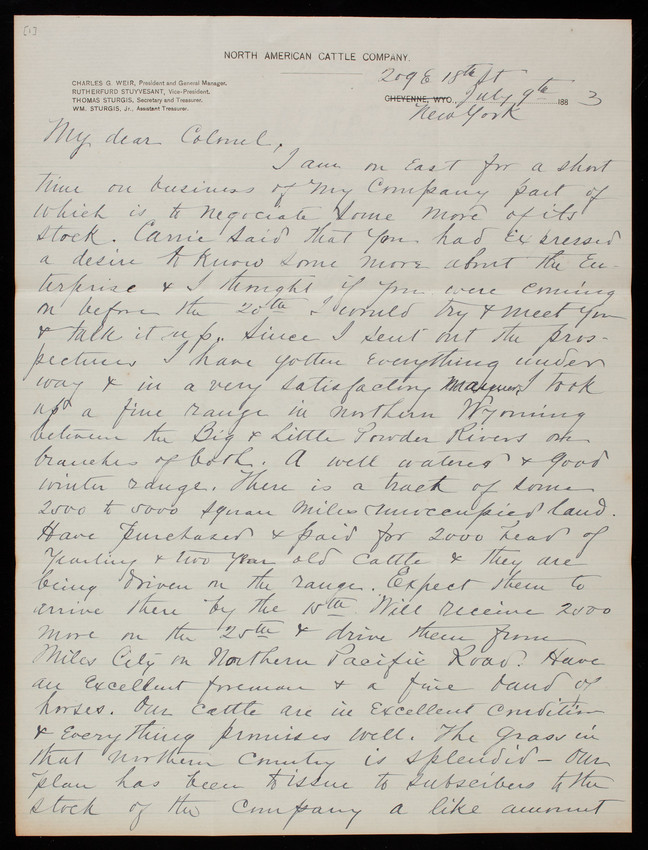 [1]
NORTH AMERICAN CATTLE COMPANY.
CHARLES G. WEIR, President and General Manager.
RUTHERFURD STUYVESANT, Vice-President.
THOMAS STURGIS, Secretary and Treasurer.
WM. STURGIS, Jr., Assistant Treasurer.
209 E 18th St
CHEYENNE, WYO., July 9th 1883
New York
My dear Colonel,
I am on East for a short
time on business of my Company part of
which is to negociate some more of its
stock. Carrie said that you had expressed
a desire to know some more about the En-
terprise & I thought if you were coming
on before the 20th I would try & meet you
& talk it up. Since I sent out the pros-
pectuses I have gotten everything under
way & in a very satisfactory manner. I took
up a fine range in northern Wyoming
between the Big & Little Powder Rivers on
branches of both. A well watered & good
winter range. There is a tract of some
2500 to 5000 square miles unoccupied land.
Have purchased & paid for 2000 head of
Yearling & two year old cattle & they are
being driven on the range. Expect them to
arrive there by the 15th. Will receive 2500
more on the 25th & drive them from
Miles City on Northern Pacific Road. Have
an Excellent foreman & a fine band of
horses. Our cattle are in Excellent condition
& Everything promises well. The grass in
that northern Country is splendid - Our
plan has been to issue to subscibers to the
stock of the Company a like amount